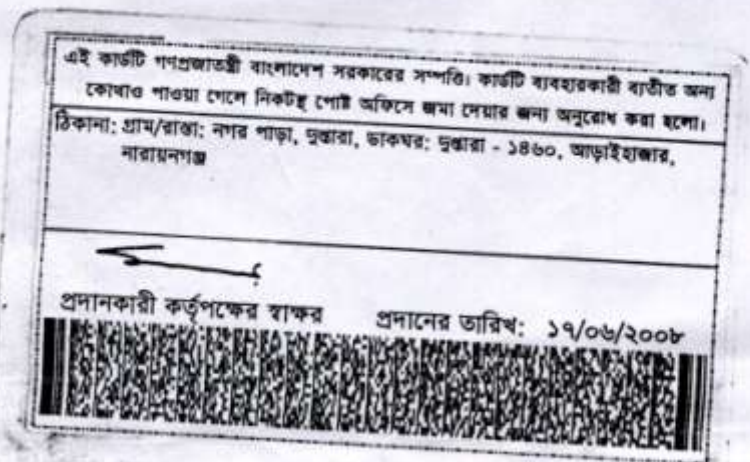 এই কার্ডটি গণপ্রজাতন্ত্রী বাংলাদেশ সরকারের সম্পত্তি। কার্ডটি ব্যবহারকারী ব্যতীত অন্য
কোথাও পাওয়া গেলে নিকটস্থ পোষ্ট অফিসে জমা দেয়ার জন্য অনুরোধ করা হলো।
ঠিকানা: গ্রাম/রাস্তা: নগর পাড়া, দুপ্তারা, ডাকঘর: দুপ্তারা - ১৪৬০, আড়াইহাজার,
নারায়নগঞ্জ
প্রদানকারী কর্তৃপক্ষের স্বাক্ষর প্রদানের তারিখ: ১৭/০৬/২০০৮